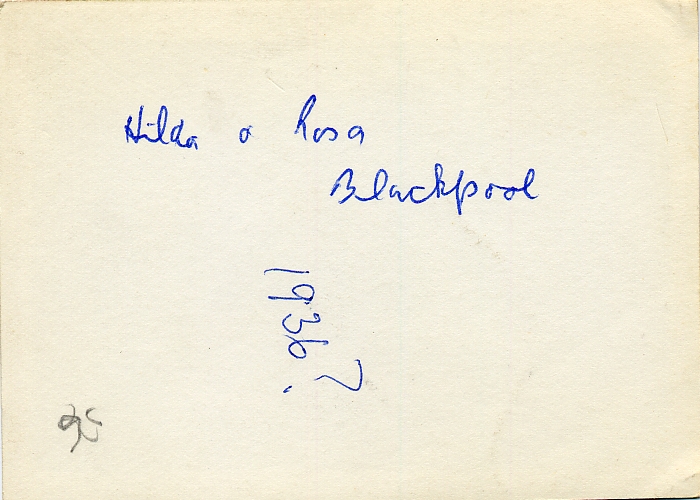 Hilda & Rosa
Blackpool
1936?